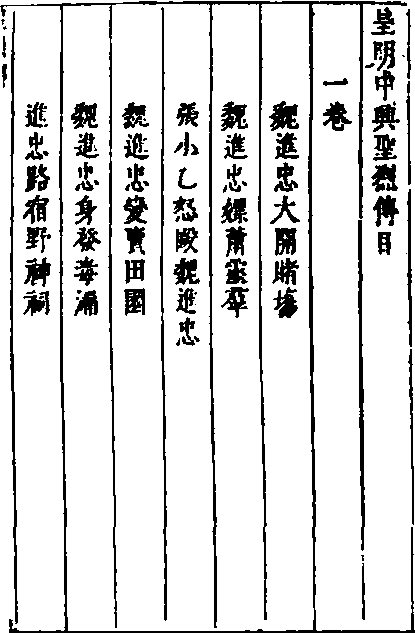 皇明中興聖烈傳目
一卷
魏進忠大開賭塲
魏進忠嫖蕭靈羣
張小乙怒毆魏進忠
魏進忠變賣田園
魏進忠身發毒
進忠路宿野神祠